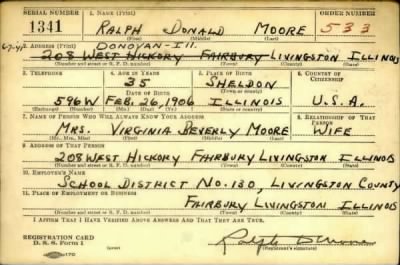 SERIAL NUMBER 1. NAME (Print) ORDER NUMBER
1341 RALPH DONALD MOORE 533
(First) (Middle) (Last)
2. ADDRESS (Print) DONOVAN-ILL.
208 WEST HICKORY FAIRBURY LIVINGSTON ILLINOIS
(Number and street or R. F. D. number) (Town) (County) (State)
3. TELEPHONE 4. AGE IN YEARS 5. PLACE OF BIRTH 6. COUNTRY OF CITIZENSHIP
35 SHELDON
DATE OF BIRTH (Town or county)
596W FEB. 26, 1906 ILLINOIS U.S.A.
(Exchange) (No.) (Mo.) (Day) (Yr.) (State or country)
7. NAME OF PERSON WHO WILL ALWAYS KNOW YOUR ADDRESS 8. RELATIONSHIP OF THAT PERSON
MRS. VIRGINIA BEVERLY MOORE WIFE
(Mr., Mrs., Miss) (First) (Middle) (Last)
9. ADDRESS OF THAT PERSON
208 WEST HICKORY FAIRBURY LIVINGSTON ILLINOIS
(Number and street or R. F. D. number) (Town) (County) (State)
10. EMPLOYER'S NAME
SCHOOL DISTRICT NO. 130, LIVINGSTON COUNTY
11. PLACE OF EMPLOYMENT OR BUSINESS
FAIRBURY LIVINGSTON ILLINOIS
(Number and street or R. F. D. number) (Town) (County) (State)
I AFFIRM THAT I HAVE VERIFIED ABOVE ANSWERS AND THAT THEY ARE TRUE.
REGISTRATION CARD
D. S. S. Form 1
(Registrant's signature)